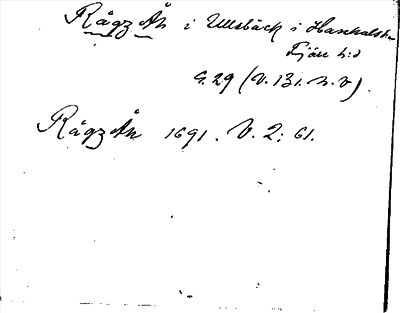 Rågz Ån i Ullsbäck i Hanhals sn
Fjäre hd
G. 29 (V. 131. n. V).
Rågz Ån 1691. V. 2: 61.